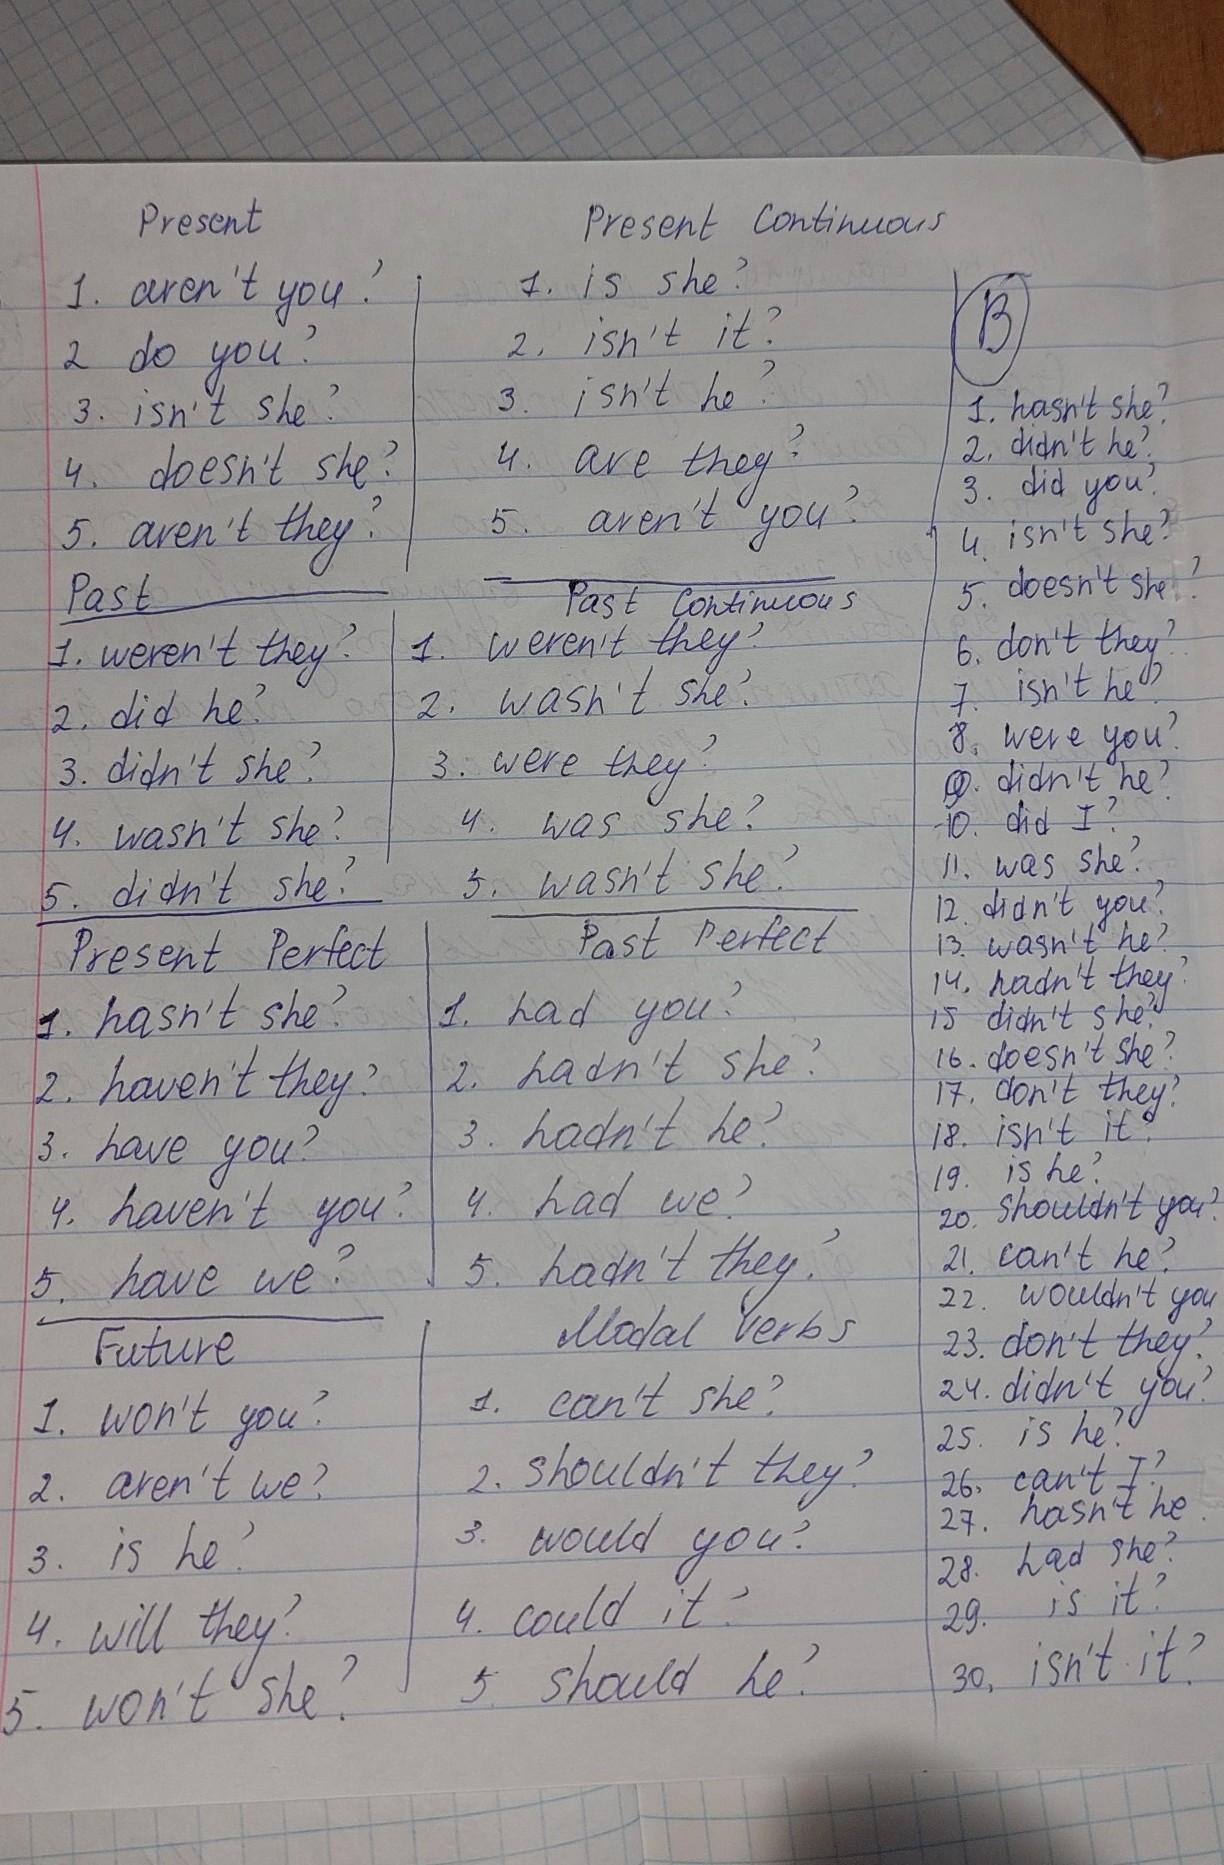 Present
1. aren't you?
2 do you?
3. isn't she?
4. doesn't she?
5. aren't they?
Present Continuous
1. is she?
2. isn't it?
3. isn't he?
4. are they?
5. aren't you?
Past
1. weren't they?
2. did he?
3. didn't she?
4. wasn't she?
5. didn't she?
Past Continuous
1. weren't they?
2. wasn't she?
3. were they?
4. was she?
5. wasn't she?
Present Perfect
1. hasn't she?
2. haven't they?
3. have you?
4. haven't you?
5. have we?
Past Perfect
1. had you?
2. hadn't she?
3. hadn't he?
4. had we?
5. hadn't they?
Future
1. won't you?
2. aren't we?
3. is he?
4. will they?
5. won't she?
Modal verbs
1. can't she?
2. shouldn't they?
3. would you?
4. could it?
5 should he?
B
1. hasn't she?
2. didn't he?
3. did you?
4. isn't she?
5. doesn't she?
6. don't they?
7. isn't he?
8. were you?
9. didn't he?
10. did I?
11. was she?
12. didn't you?
13. wasn't he?
14. hadn't they?
15 didn't she?
16. doesn't she?
17. don't they?
18. isn't it?
19. is he?
20. shouldn't you?
21. can't he?
22. wouldn't you
23. don't they?
24. didn't you?
25. is he?
26. can't I?
27. hasn't he
28. had she?
29. is it?
30. isn't it?